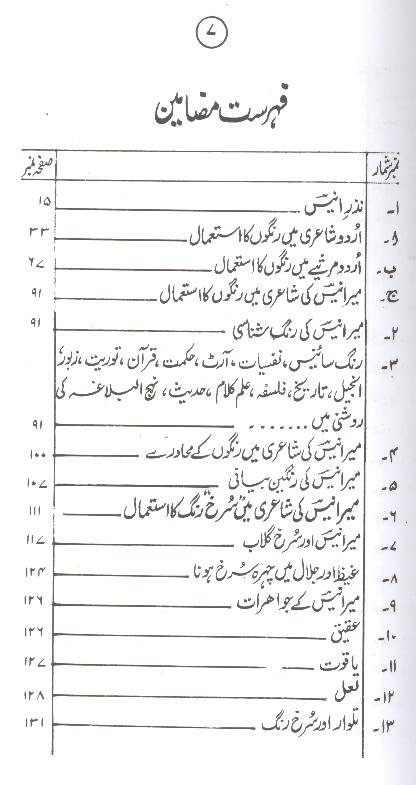 ۷
فہرست مضامین
نمبر شمار صفحہ نمبر
۱۔ نذرِ انیسؔ ۱۵
۱۔ اُردو شاعری میں رنگوں کا استعمال ۳۳
ب۔ اُردو مرثیے میں رنگوں کا استعمال ۶۷
ج۔ میر انیسؔ کی شاعری میں رنگوں کا استعمال ۹۱
۲۔ میر انیسؔ کی رنگ شناسی ۹۱
۳۔ رنگ سائنس، نفسیات، آرٹ، حکمت، قرآن، توریت، زبور،
انجیل، تاریخ، فلسفہ، علم کلام، حدیث، نہج البلاغہ کی
روشنی میں ....... ۹۱
۴۔ میر انیسؔ کی شاعری میں رنگوں کے محاورے ۱۰۰
۵۔ میر انیسؔ کی رنگین بیانی ۱۰۷
۶۔ میر انیسؔ کی شاعری میں "سُرخ" رنگ کا استعمال ۱۱۱
۷۔ میر انیسؔ اور سُرخ گلاب ۱۱۷
۸۔ غیظ اور جلال میں چہرہ سرخ ہونا ۱۲۴
۹۔ میر انیسؔ کے جواھرات ۱۲۶
۱۰۔ عقیق ۱۲۶
۱۱۔ یاقوت ۱۲۷
۱۲۔ لعل ۱۲۸
۱۳۔ تلوار اور سُرخ رنگ ۱۳۱